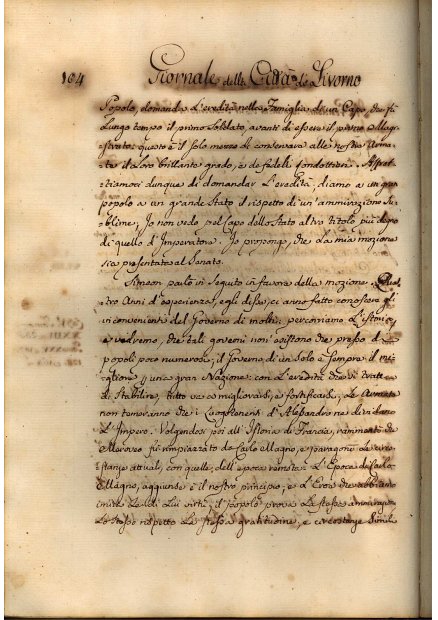 104 Giornale della Città di Livorno
Popolo, domanda L'eredità nella Famiglia di un Capo, che fù
Lungo tempo il primo Soldato, avanti di essere il primo Magi-
strato: questo è il solo mezzo di conservare alle nostre Arma-
te il loro brillante grado, e de fedeli Condottieri. Affret-
tiamoci dunque di domandar L'eredità, diamo a un gran
popolo a un grande Stato il rispetto di un'ammirazione Su-
blime; Io non vedo pel Capo dello Stato altro titolo più degno
di quello d'Imperatore. Io propongo, che la mia mozione
sia presentata al Senato.
Simeon parlò in seguito in favora della mozione. Quat-
tro Anni d'esperienza, egli disse, ci anno fatto conoscere gl'
inconvenienti del Governo di molti: percorriamo L'istoria,
e vedremo, che tali governi non esistono che presso di
popoli poco numerosi; il Governo di un Solo è Sempre il mi-
gliore una gran Nazione: con L'eredità che si tratta
di Stabilire, tutto va a migliorarsi, e fortificarsi; Le Armate
non temeranno che i Luogotenenti d'Alessandro ne dividano
L'Impero. Volgendosi poi all'Istoria di Francia, rammentò che
Meroveo fù rimpiazzato da Carlo Magno, e paragonò Le circo-
stanze attuali, con quelle dell'epoca remota. L'Epoca di Carlo
Magno, aggiunse è il nostro principio, e L'Eroe che abbiamo
imita Le di Lui virtù; il popolo prova La stessa ammirazione
Lo stesso rispetto La stessa gratitudine, e circostanze Simili